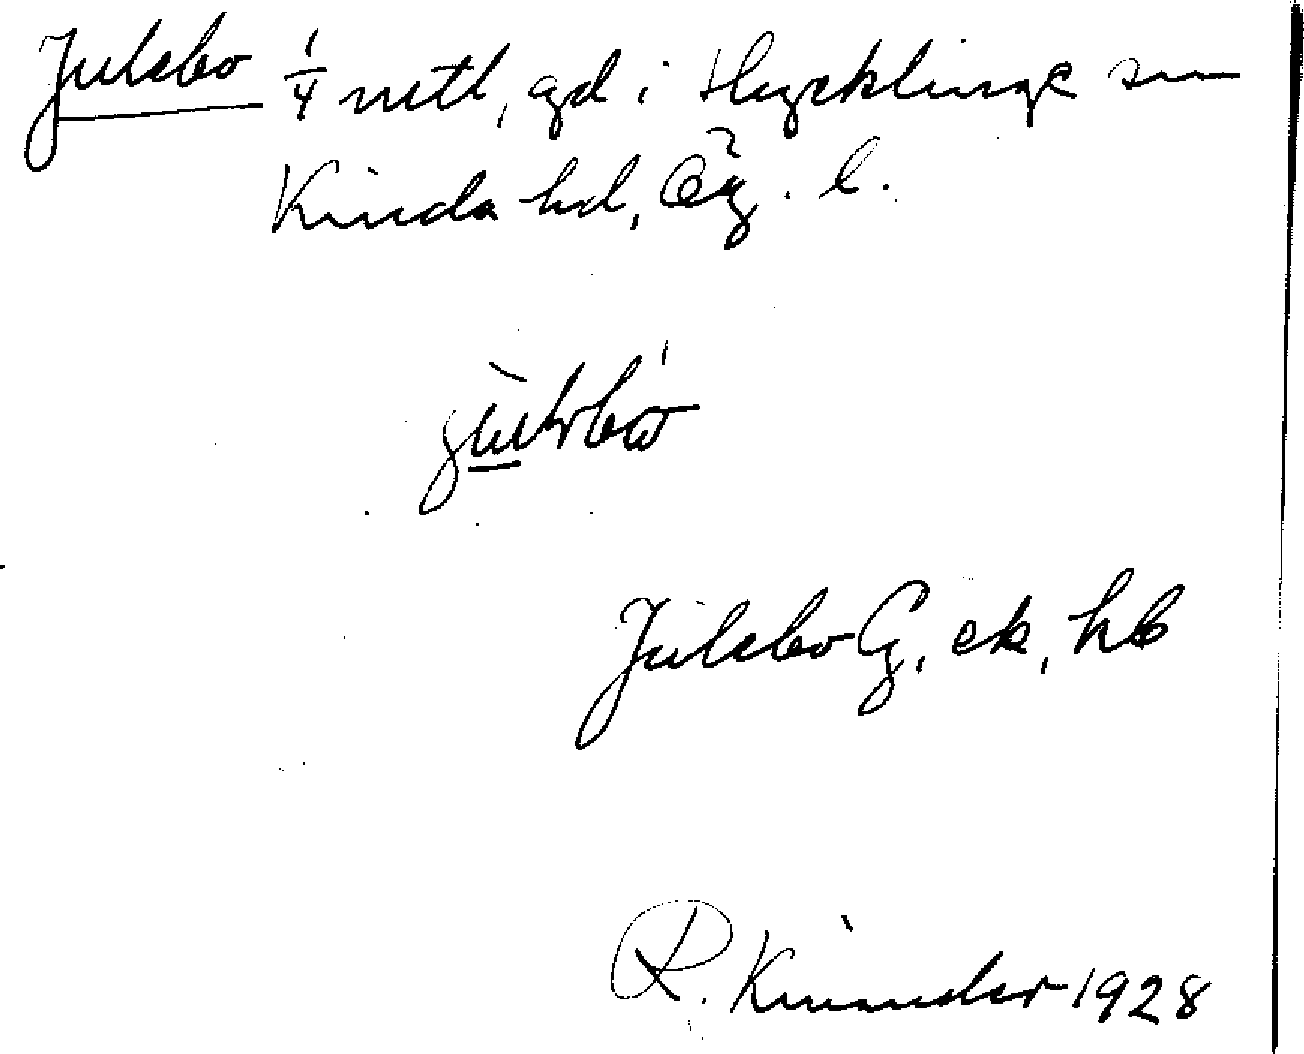 Julsbo 1/4 mtl, gd i Hycklinge sn
Kinda hd, Ög. l.
Julsbo G, ek, hb
R. Kinander 1928